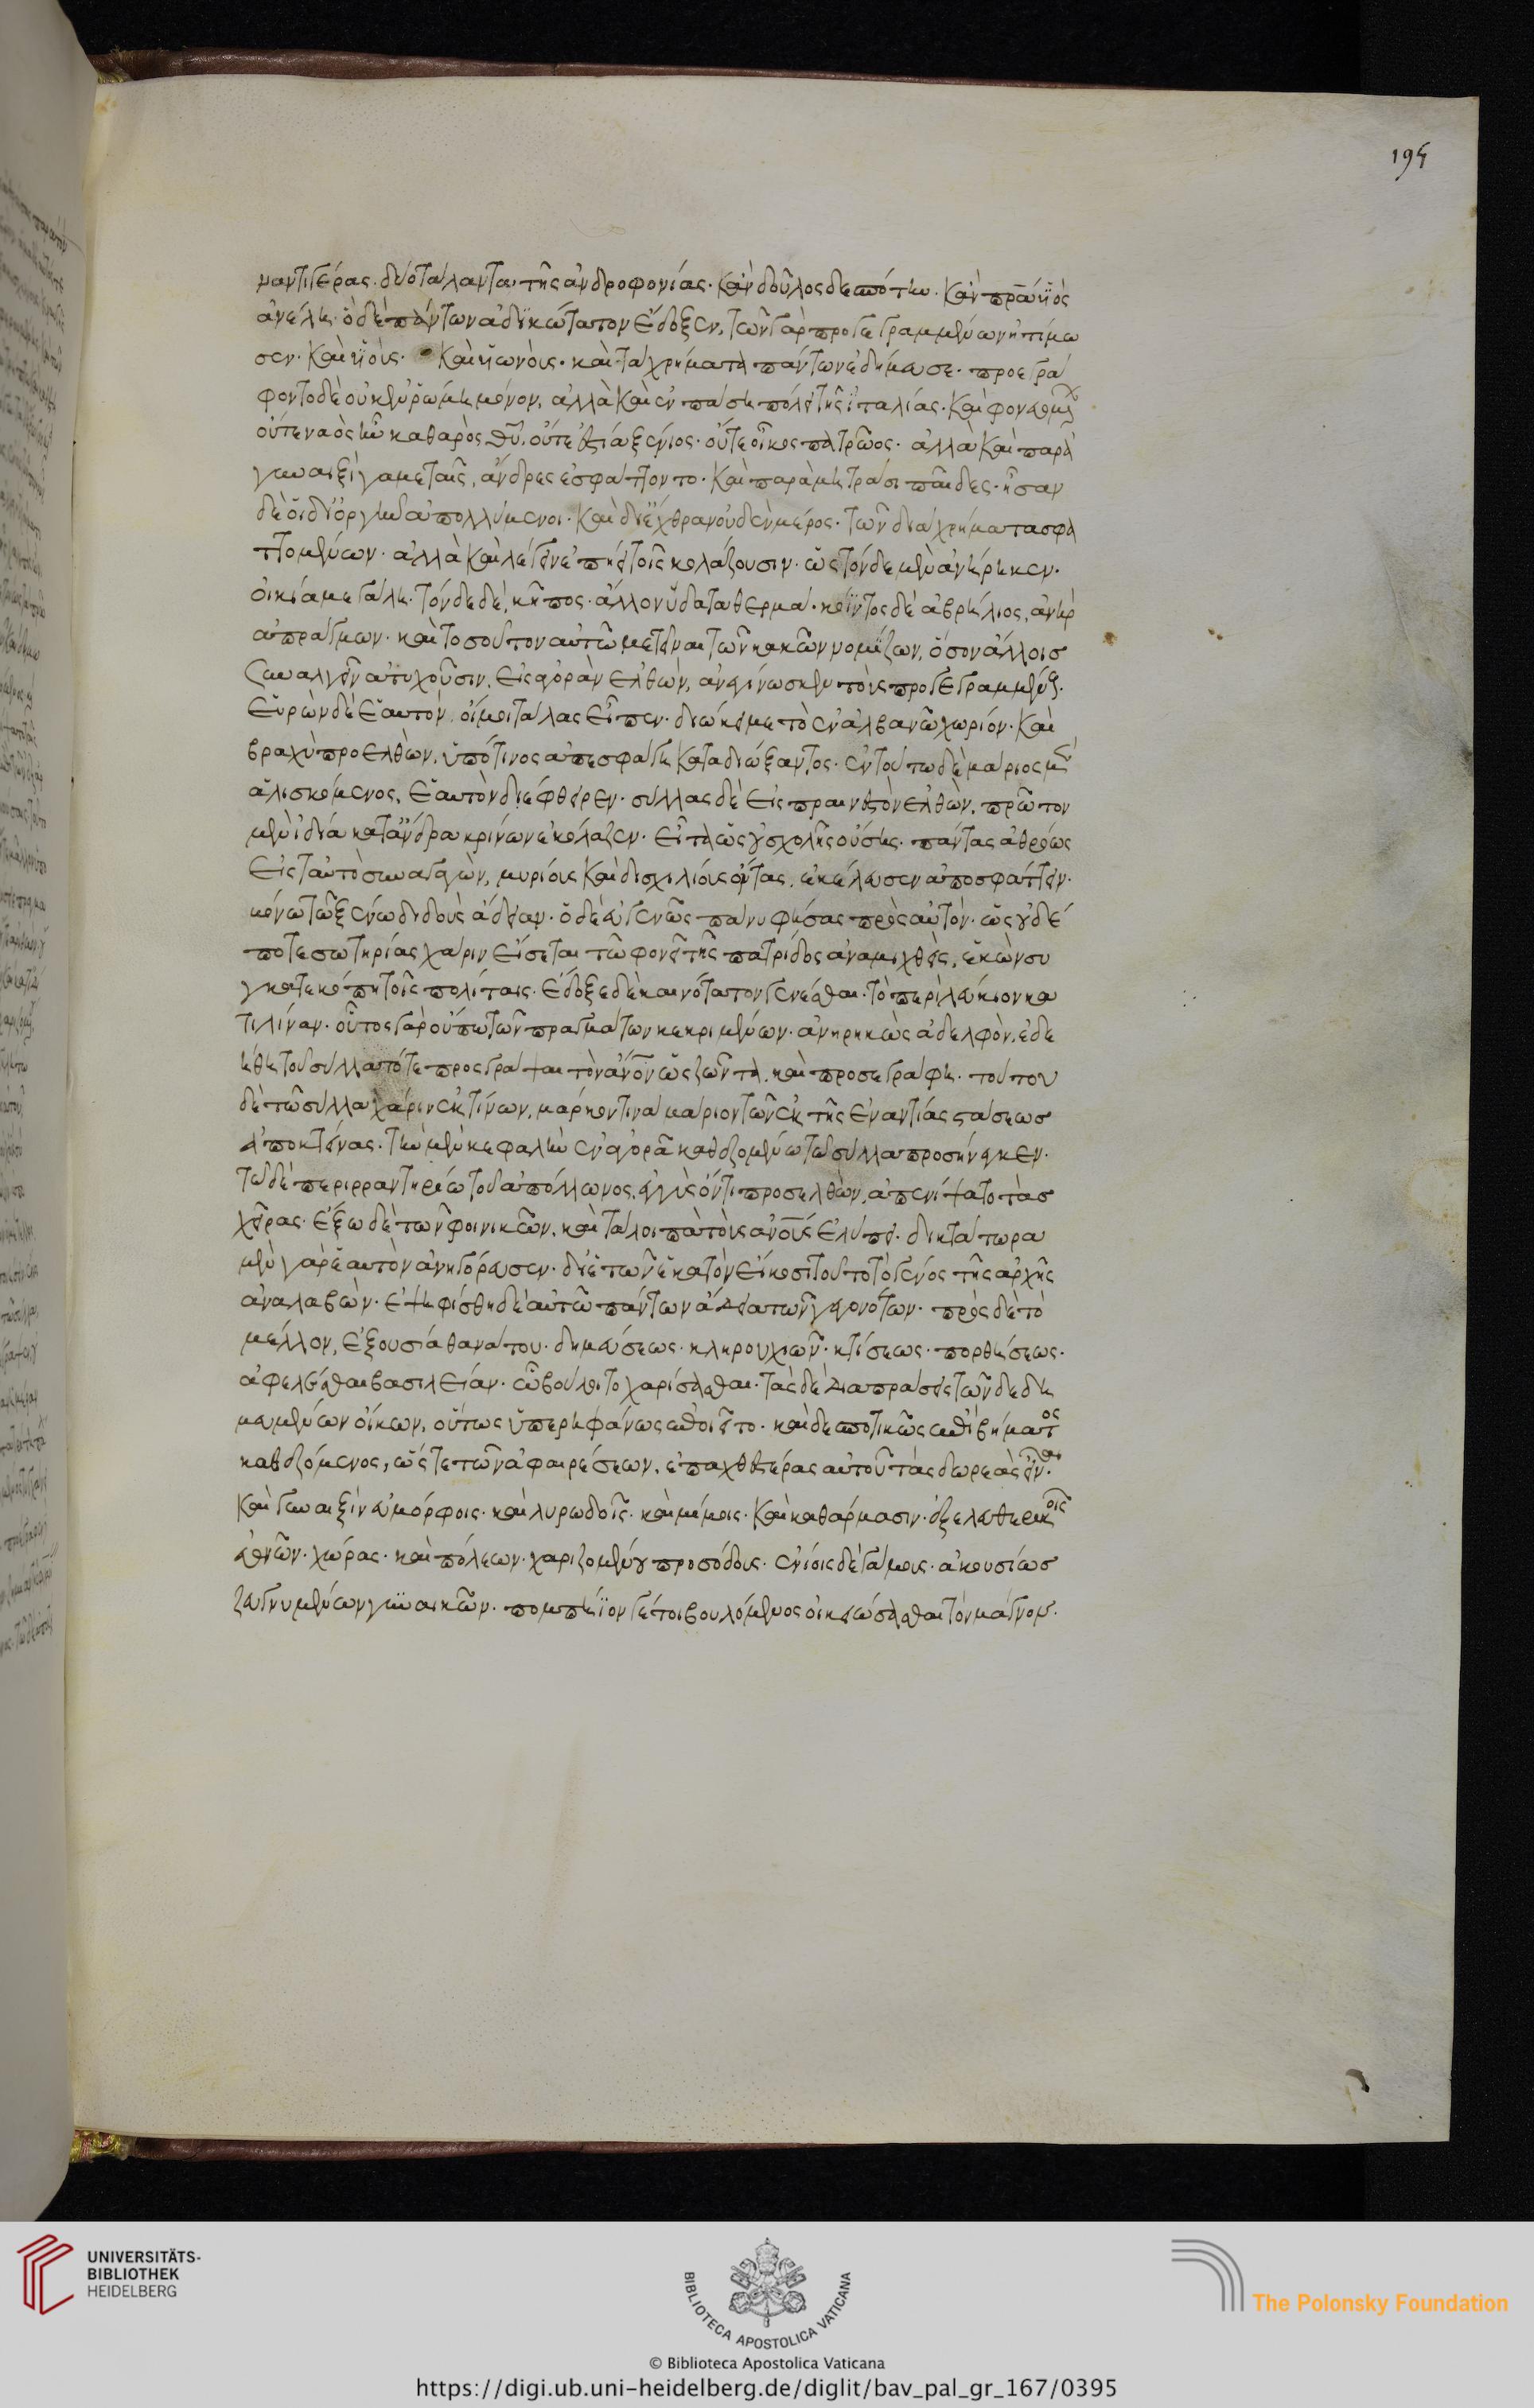 195
ναντι γέρας. δύο τάλαντα τῆς ἀνδροφονίας. κἂν δοῦλος δεσπότην. κἂν πρα υἱὸς
ἀνέλη. ὁ δὲ πάντων ἀδικώτατον ἔδοξεν, τῶν γὰρ προγεγραμμένων ἠτίμω
σεν. καὶ υἱοὺς. καὶ υἱωνοὺς. καὶ τὰ χρήματα πάντων ἐδήμευσε. προεγρά
φοντο δὲ οὐκ ἐν ῥώμη μόνον, ἀλλὰ καὶ ἐν πάση πόλει τῆς ἰταλίας. καὶ φονευομ
οὔτε ναὸς ἦν καθαρὸς θῦ, οὔτε ἑστία ξένιος. οὔτε οἶκος πατρῶος. ἀλλὰ καὶ παρὰ
γυναιξὶ γαμεταῖς, ἄνδρες ἐσφάττοντο. καὶ παρὰ μητράσι παῖδες. ἦσαν
δὲ οἱ δι' ὀργὴν ἀπολλύμενοι. καὶ δι' ἔχθραν οὐδὲν μέρος. τῶν διὰ χρήματα σφα
ττομένων. ἀλλὰ καὶ λέγειν ἐπήει τοῖς κολάζουσιν. ὡς τόνδε μὲν ἀνήρηκεν.
οἰκία μεγάλη. τόνδε δὲ, κῆπος. ἄλλον ὕδατα θερμά. κοΐντος δὲ ἀβρήλιος, ἀνὴρ
ἀπράγμων. καὶ τοσοῦτον αὐτῶ μετεῖναι τῶν κακῶν νομίζων, ὅσον ἄλλοις
συναλγεῖν ἀτυχοῦσιν, εἰς ἀγορὰν ἐλθὼν, ἀνεγίνωσκεν τοὺς προγεγραμμένους.
εὑρὼν δὲ ἑαυτὸν. οἴμοι τάλας εἶπεν. διώκει με τὸ ἐν ἀλβανῶ χωρίον. καὶ
βραχὺ προελθὼν, ὑπό τινος ἀπεσφάγη καταδιώξαντος. ἐν τούτω δὲ μάριος μὲν
ἁλισκόμενος, ἑαυτὸν διέφθειρεν. σύλλας δὲ εἰς πραινεστὸν ἐλθὼν, πρῶτον
μὲν ἰδία κατ' ἄνδρα κρίνων ἐκόλαζεν. εἶτα ὡς οὐ σχολῆς οὔσης. πάντας ἀθρόως
εἰς ταὐτὸ συναγαγὼν, μυρίους καὶ δισχιλίους ὄντας, ἐκέλευσεν ἀποσφάττειν.
μόνω τῶ ξένω διδοὺς ἄδειαν. ὁ δὲ εὐγενῶς πάνυ φήσας πρὸς αὐτὸν. ὡς οὐδέ
ποτε σωτηρίας χάριν εἴσεται τῶ φονεῖ τῆς πατρίδος ἀναμιχθεὶς, ἑκὼν συ
γκατεκόπη τοῖς πολίταις. ἔδοξε δὲ καινότατον γενέσθαι. τὸ περὶ λεύκιον κα
τιλίναν. οὗτος γὰρ οὔπω τῶν πραγμάτων κεκριμένων. ἀνηρηκὼς ἀδελφὸν, ἐδε
ήθη τοῦ σύλλα τότε προσγράψαι τὸν ἄνον ὡς ζῶντα. καὶ προσεγράφη. τούτου
δὲ τῶ σύλλα χάριν ἐκτίνων, μάρκον τινὰ μάριον τῶν ἐκ τῆς ἐναντίας στάσεως
ἀποκτείνας. τὴν μὲν κεφαλὴν ἐν ἀγορᾶ καθεζομένω τῶ σύλλα προσήνεγκεν.
τῶ δὲ περιρραντηρίω τοῦ ἀπόλλωνος, ἐγγὺς ὄντι προσελθὼν, ἀπενίψατο τὰς
χεῖρας. ἔξω δὲ τῶν φονικῶν. καὶ τὰ λοιπὰ τοὺς ἀνους ἐλύπει. δικτάτωρα
μὲν γὰρ ἑαυτὸν ἀνηγόρευσεν. δι' ἐτῶν ἑκατὸν εἴκοσι τοῦτο τὸ γένος τῆς ἀρχῆς
ἀναλαβών. ἐψηφίσθη δὲ αὐτῶ πάντων ἄδεια τῶν γεγονότων. πρὸς δὲ τὸ
μέλλον, ἐξουσία θανάτου. δημεύσεως. κληρουχιῶν. κτίσεως. πορθήσεως.
ἀφελέσθαι βασιλείαν. ὧ βούλοιτο χαρίσασθαι. τὰς δὲ διαπράσεις τῶν δεδη
μευμένων οἴκων, οὕτως ὑπερηφάνως ἐποιεῖτο. καὶ δεσποτικῶς ἐπὶ βήματος
καθεζόμενος, ὥστε τῶν ἀφαιρέσεων, ἐπαχθεστέρας αὐτοῦ τὰς δωρεὰς εἶναι.
καὶ γυναιξὶν εὐμόρφοις. καὶ λυρωδοῖς. καὶ μίμοις. καὶ καθάρμασιν. ἐξελευθερικοῖς
ἐθνῶν. χώρας. καὶ πόλεων. χαριζομένου προσόδους. ἐνίοις δὲ γάμοις. ἀκουσίως
ζευγνυμένων γυναικῶν. πομπήϊον γέ τοι βουλόμενος οἰκειώσασθαι τὸν μάγνον.
UNIVERSITÄTS-
BIBLIOTHEK
HEIDELBERG
BIBLIOTECA APOSTOLICA VATICANA
The Polonsky Foundation
© Biblioteca Apostolica Vaticana
https://digi.ub.uni-heidelberg.de/diglit/bav_pal_gr_167/0395